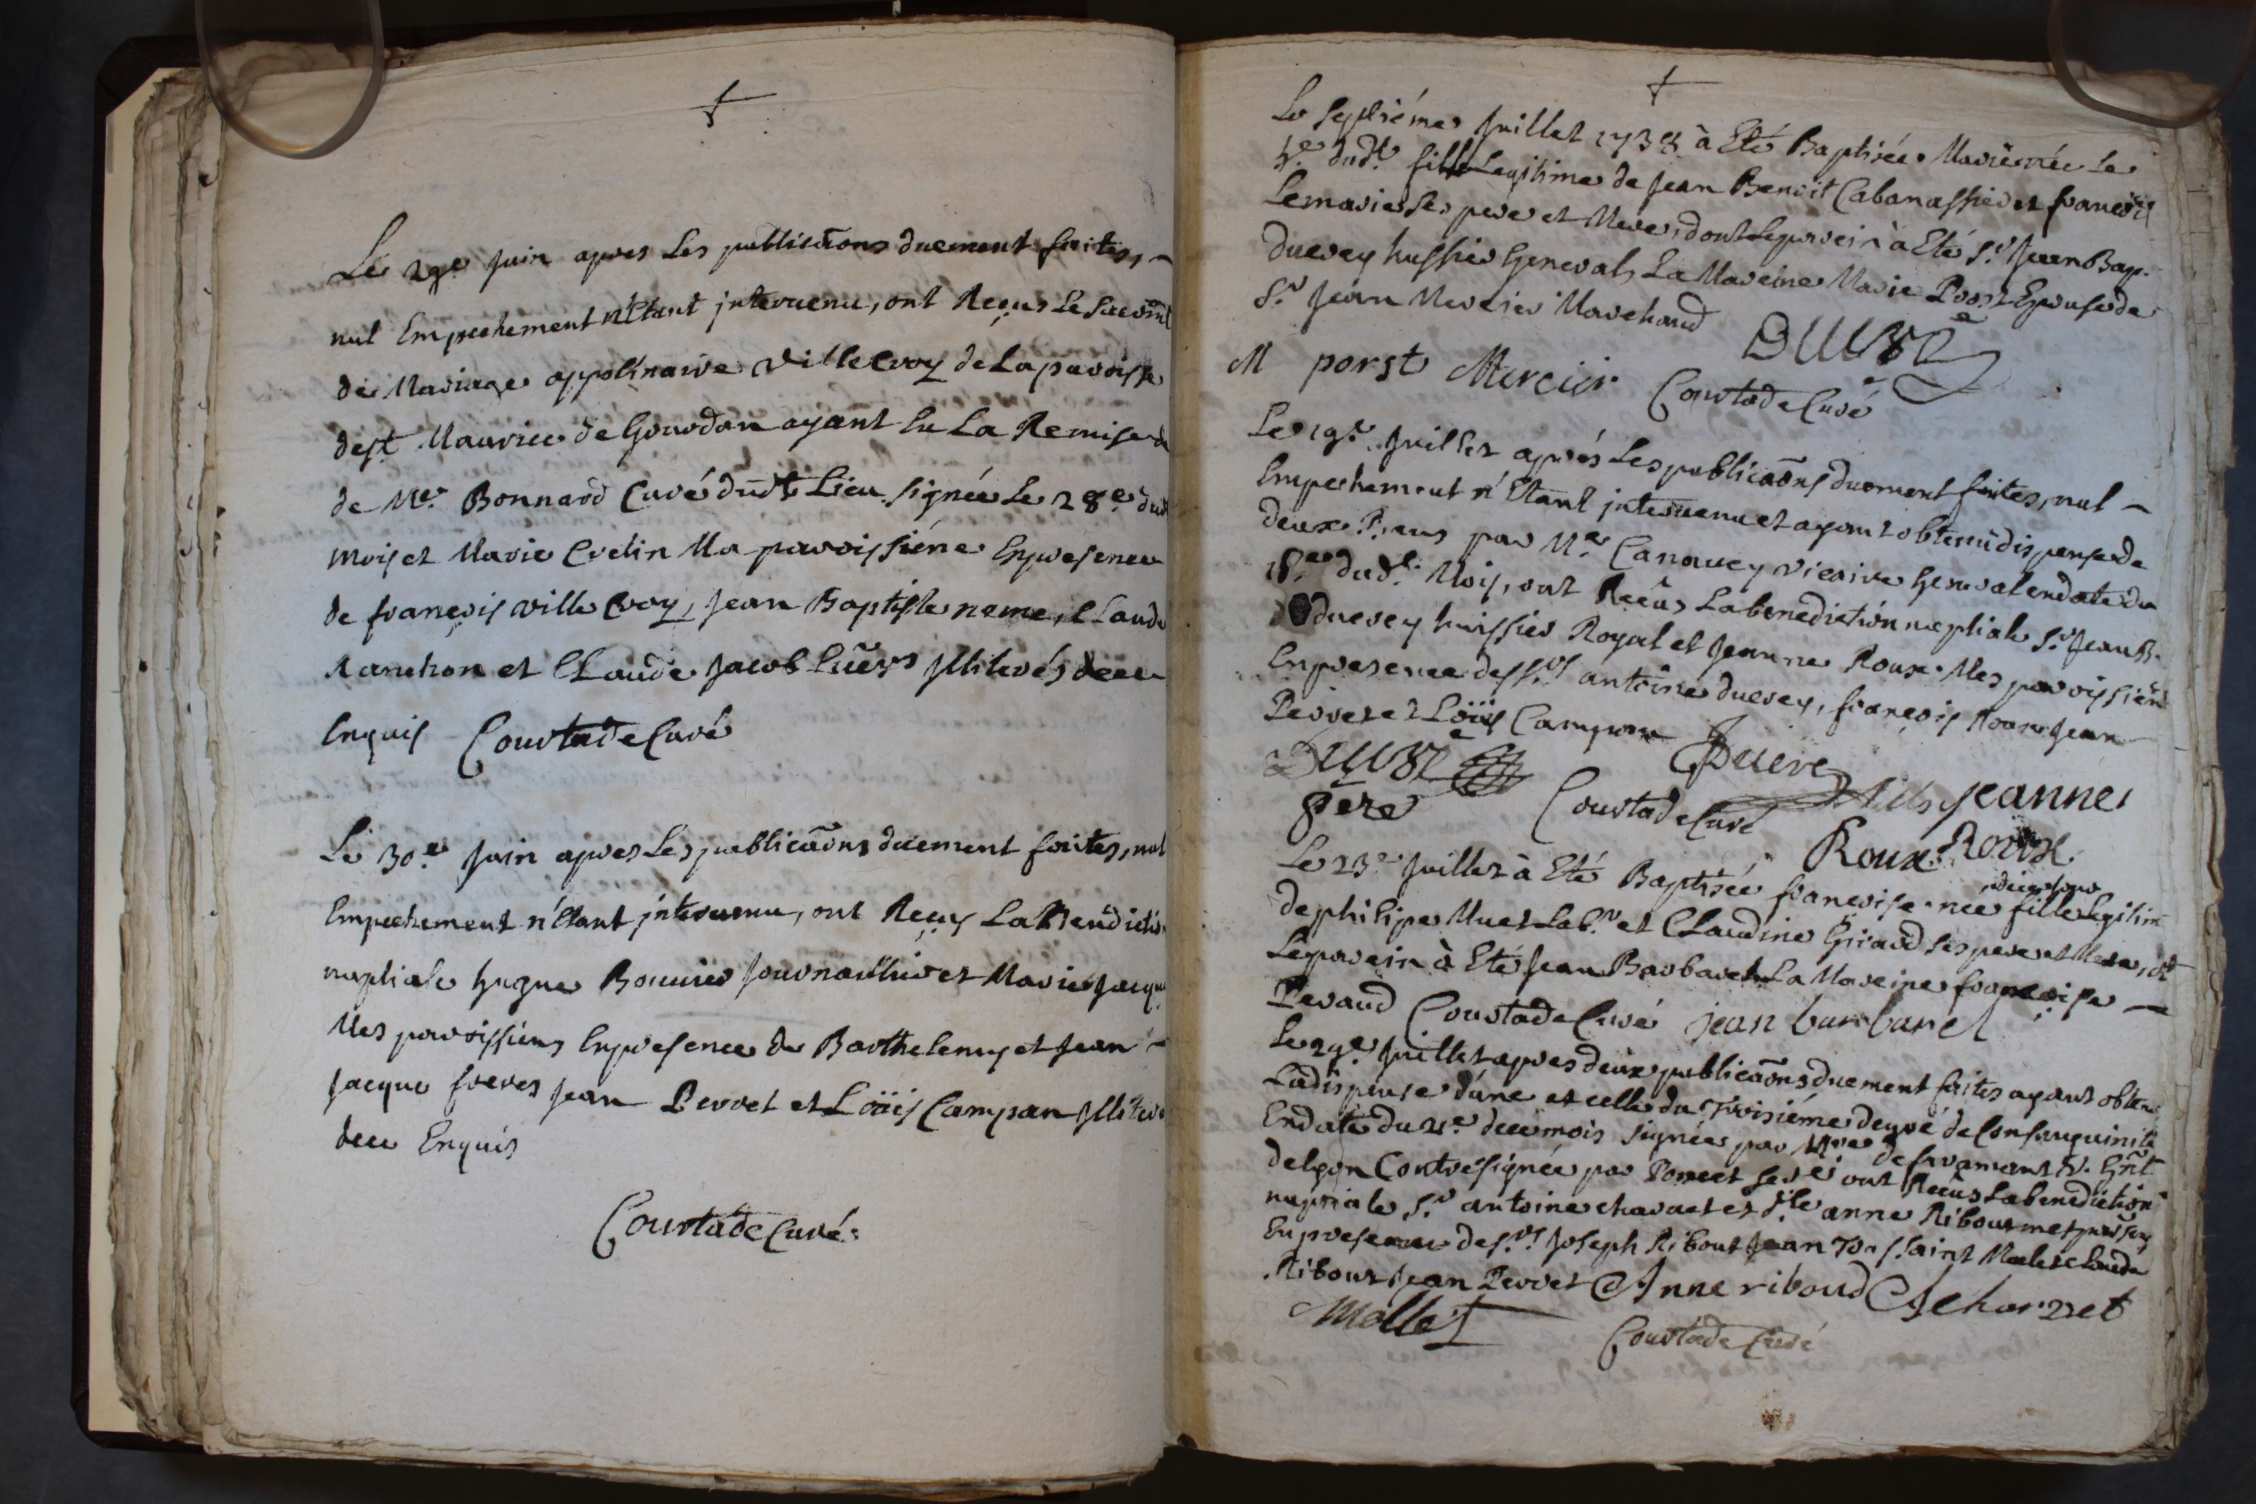 Le 29e juin apres Les publicãons duement faites, -
nul Empechement n'Etant jntervenu, ont Reçus Le Sacrem̃t
de Mariage appolinaire Villecroy de La paroisse
de st. Maurice de Gourdan ayant Eu La Remise
de Mre. Bonnard Curé dud̃t Lieu signée Le 28e. dud
mois et Marie Cretin Ma paroissiéne En presence
de françois villecroy, jean Baptiste neme, Claude
Ranchon et Claude jacob Curs jlliterés de ce
Enquis Courtade Curé
Le 30.e juin apres Les publicãons duement faites, nul
Empechement n'Etant jntervenu, ont Reçus La Benedictiõ
nuptiale hugue Bouvier journailler et Marie jacque
Mes paroissiens En presence de Barthelemy et jean -
jacque freres jean Perret et Loüis Campan jllitere
de ce Enquis
Courtade Curé.
Le septiéme juillet 1738 à Eté Baptisée Marie née Le
dud.t fille Legitime de jean Benoit Cabanassier et françoise
Lemarie ses pere et Mere, dont Le parein à Eté S.r jean Bap.
Ducrey huissier General, La Mareine Marie Porst Epouse de
S.r jean Mercier Marchand
M porst Mercier Courtade Curé
Le 19.e juillet aprés Les publicãons duement faites, nul -
Empechement n'Etant jntervenu et ayant obtenu dispense de
deux Bans par Mre. Canavey vicaire General en date du
18.e dud.t Mois, ont Reçus La benediction nuptiale S.r jean B.
ducrey huissier Royal et jeanne Roux. Mes paroissiens
En presence des S.rs antoine ducrey, françois Roux jean -
Perret et Loüis Campan
pere Courtade Curé fils jeanne
Roux Roux
Le 23.e juillet à Eté Baptisée françoise née fille Legitim
de philipe Muet Lab.r et Claudine Giraud ses pere et Mere, dt
Le parein à Eté jean Barbaret La Mareine françoise -
Peraud Courtade Curé jean barbaret
Le 29.e juillet apres deux publicãons duement faites ayant obtenu
La dispense d'une et celle du Troisiéme degré de Consanguinité
En date du 21.e de ce mois signée par Mre. de V. Gñl.
de Lyon Contresignée par Poncet ont Reçus La benediction
nuptiale S.r antoine charvet et dlle anne Ribout mes parois
En presence des S.rs joseph Ribout jean Toussaint Malet Claude
Ribout jean Perret Anne riboud A charvet
Mollet Courtade Curé